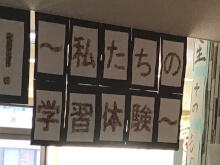 !
～私たちの
学習体験～